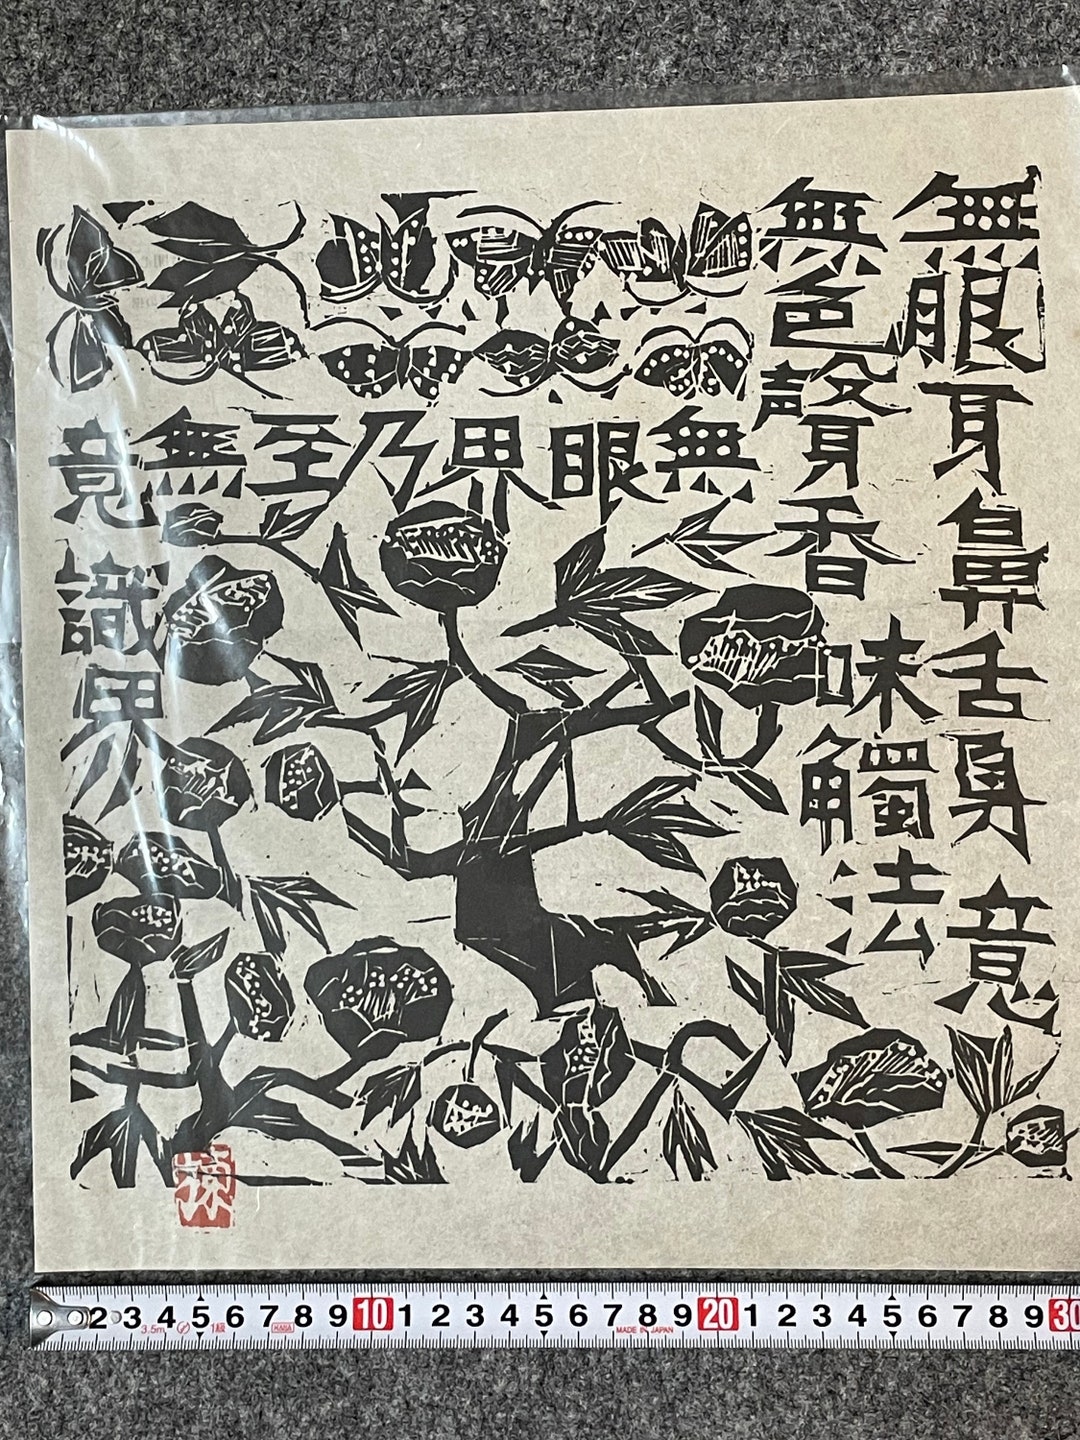 無眼耳鼻舌身意
無色聲香味觸法
無眼界乃至無意
識界
2 3 4 5 6 7 8 9 10 1 2 3 4 5 6 7 8 9 20 1 2 3 4 5 6 7 8 9 30
3.5m 1級 MADE IN JAPAN